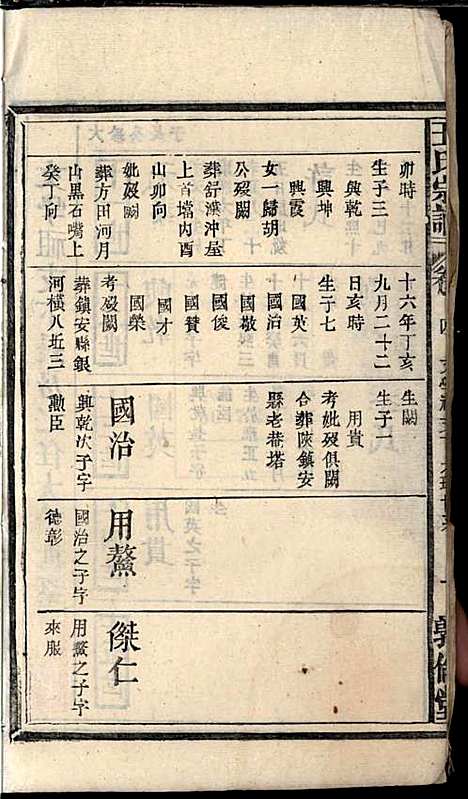 王氏宗譜
卯時
生子三
興乾
興坤
興霞
女一歸胡
公歿闕
葬舒漢沖屋
上首壋內酉
山卯向
妣歿闕
葬方田河月
山黑石嘴上
癸丁向
十六年丁亥
九月二十二
日亥時
生子七
國英
國治
國敬
國俊
國贊
國才
國榮
考歿闕
葬鎮安縣銀
河橫八近三
生闕
生子一
用貴
考妣歿俱闕
合葬陝鎮安
縣老巷塔
國治
興乾次子字
勳臣
用鰲
國治之子字
德彰
傑仁
用鰲之子字
來服
敦倫堂